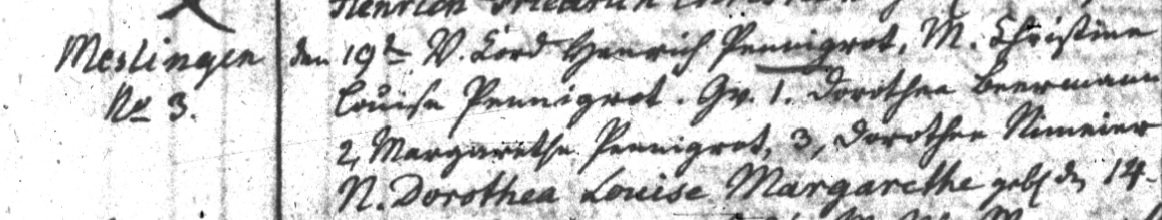 Henrich Friedrich
Meslingen den 19t V. Cord Henrich Pennigrot, M. Christine
No 3. Louise Pennigrot. Gv. 1. Dorothea Beermann
2, Margarethe Pennigrot, 3, Dorothee Nimeier
N. Dorothea Louise Margarethe geb. d. 14.